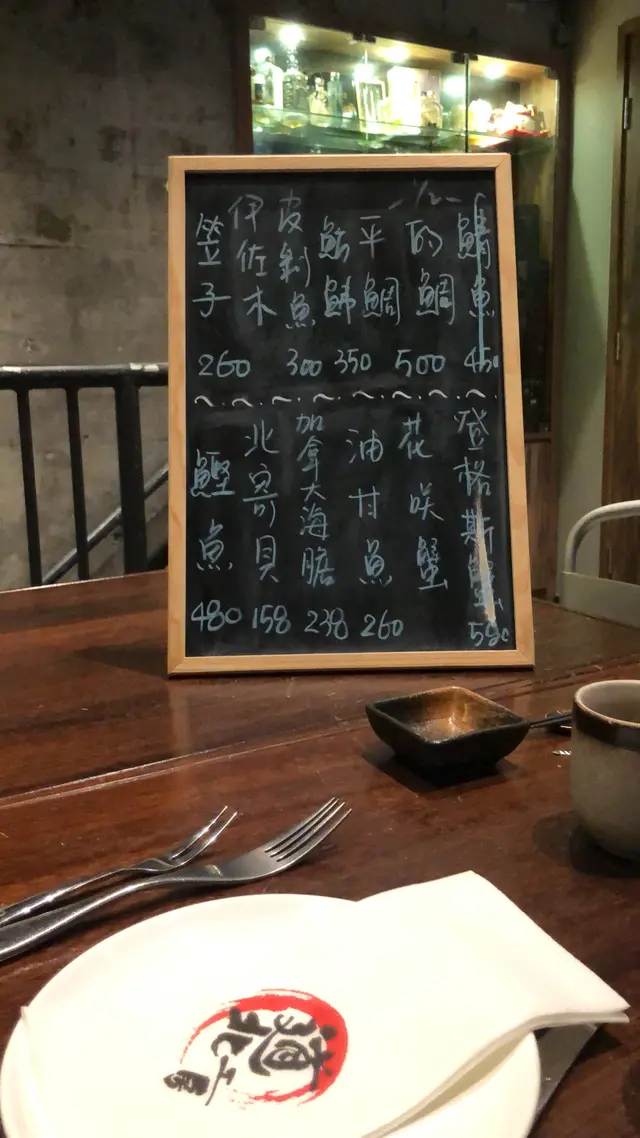 鯖魚 450
的鯛 500
平鯛
350
皮剝魚 300
伊佐木
笠子 260
登格斯蟹 580
花咲蟹
油甘魚 260
加拿大海膽 238
北寄貝 158
鰹魚 480